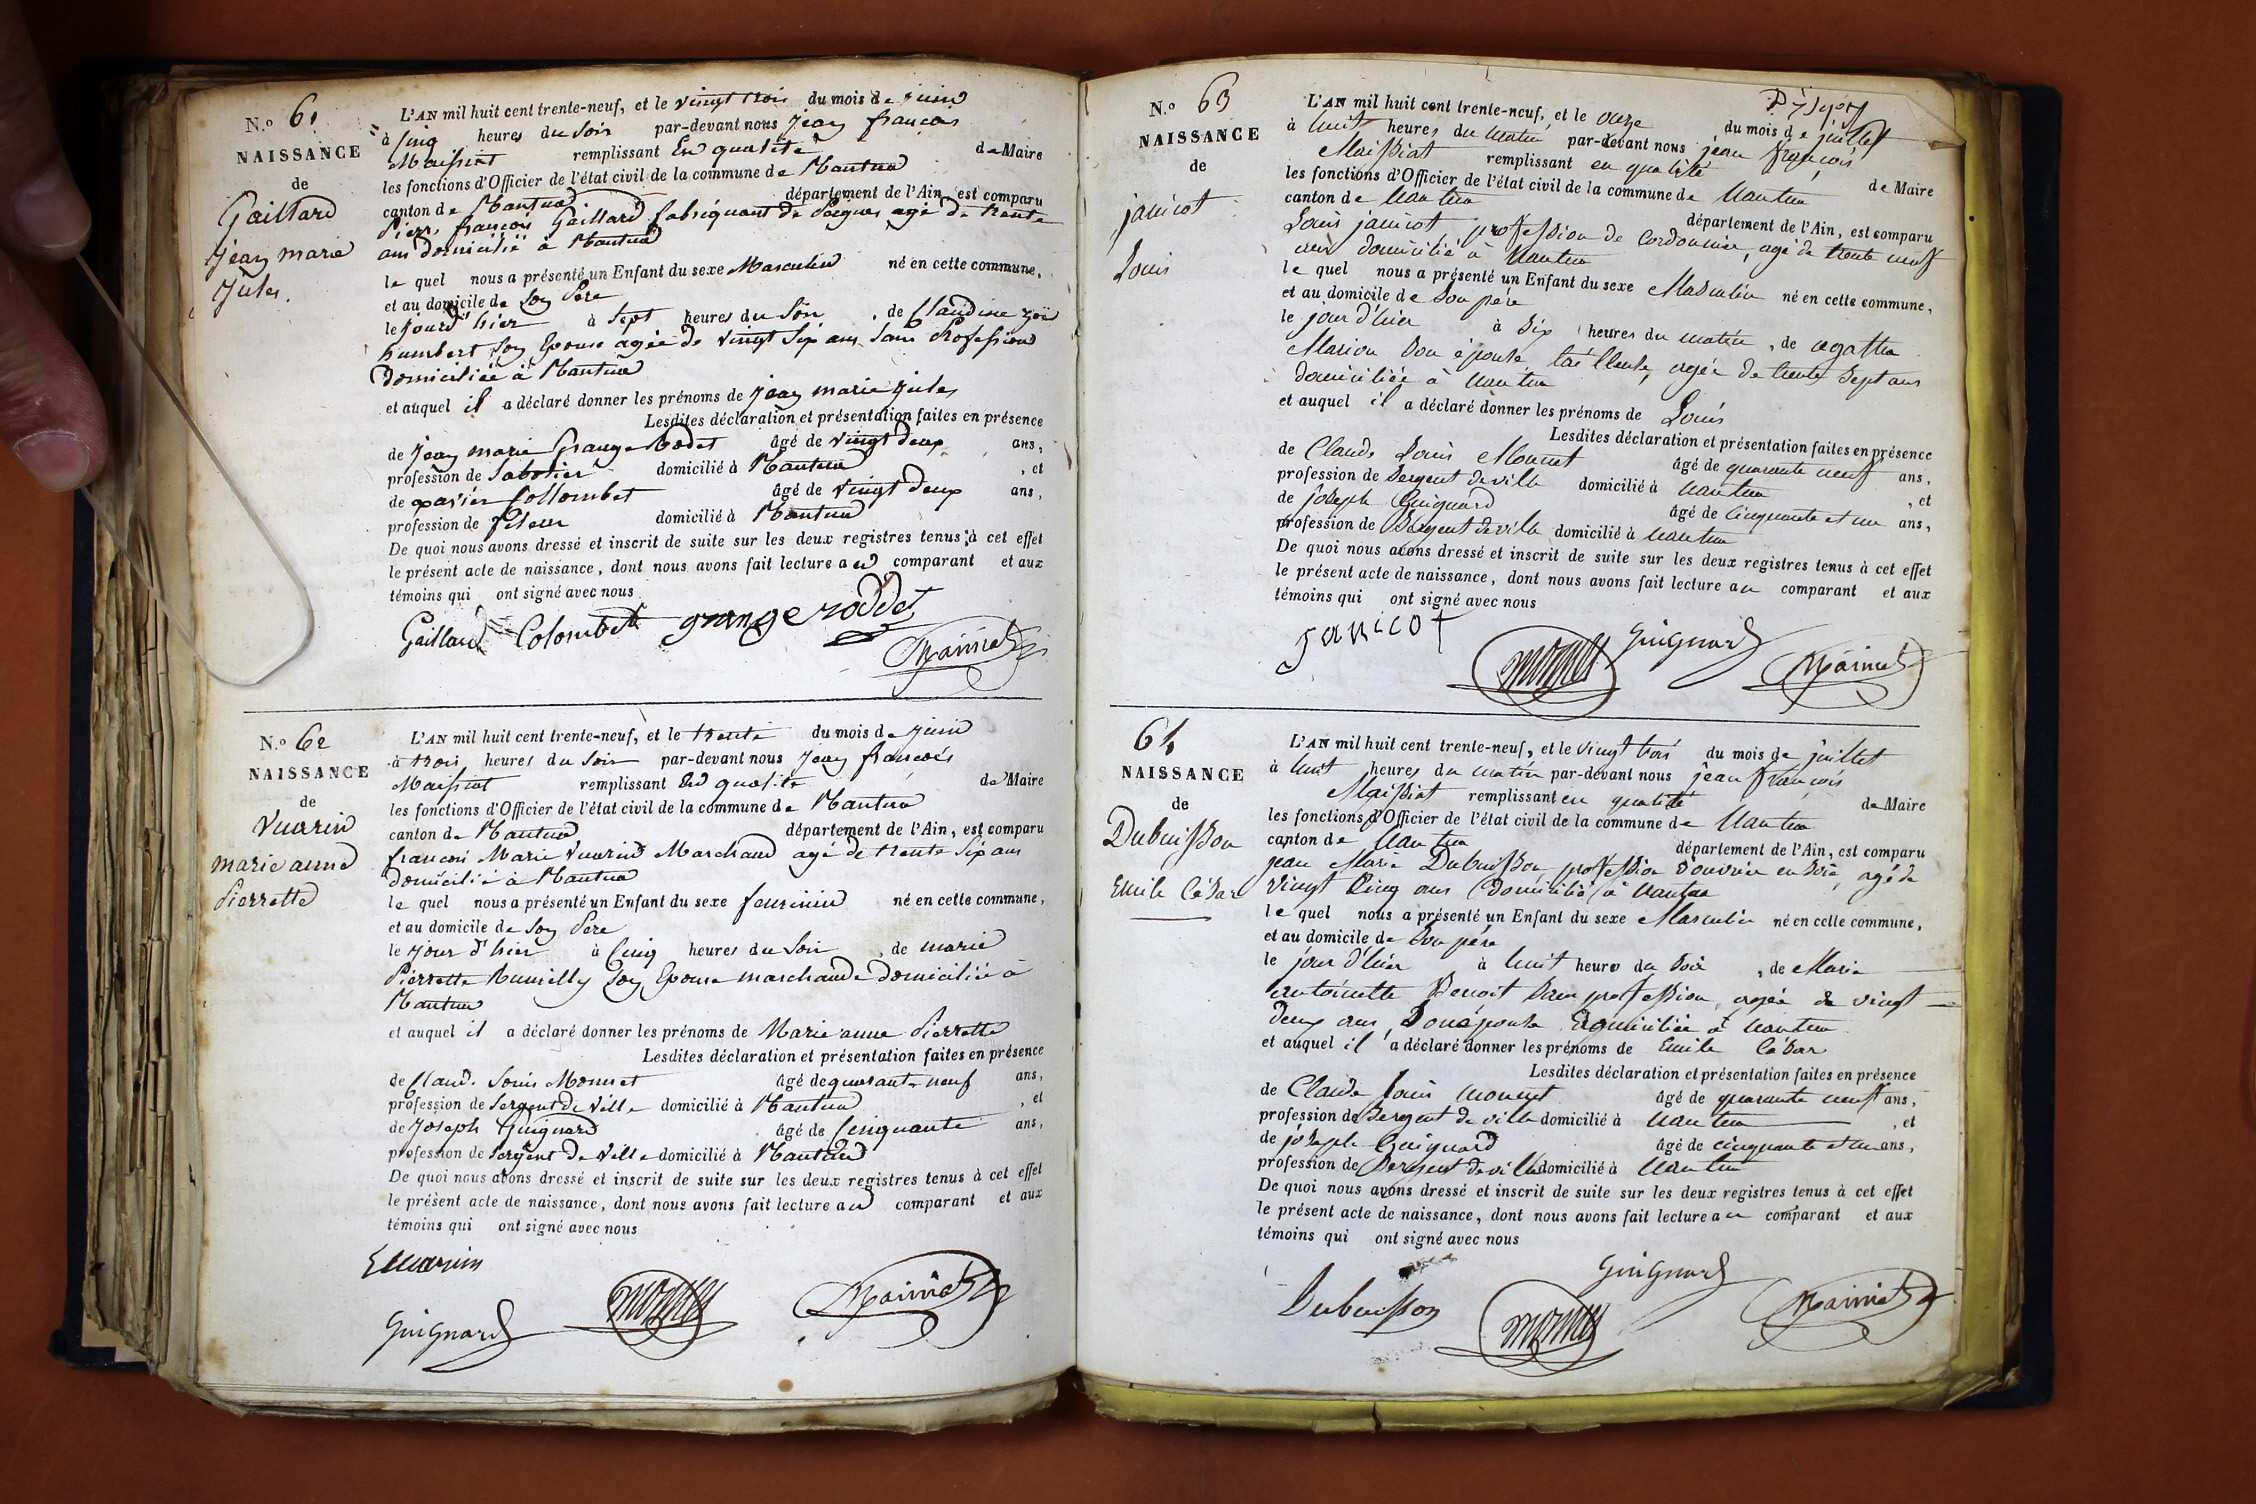 N.º 61
NAISSANCE
de
Gaillard
jean marie
jules.
L'AN mil huit cent trente-neuf, et le vingt trois du mois de juin
à Cinq heures du Soir par-devant nous jean françois
Maissiat remplissant En qualité de Maire
les fonctions d'Officier de l'état civil de la commune de Nantua
canton de Nantua département de l'Ain, est comparu
Pierre françois Gaillard fabriquant de Peignes agé de trente
ans domicilié à Nantua
le quel nous a présenté un Enfant du sexe Masculin né en cette commune,
et au domicile de Son Pere
le jour d'hier à Sept heures du Soir, de Claudine
humbert Son Epouse agée de vingt Six ans Sans Profession
domiciliée à Nantua
et auquel il a déclaré donner les prénoms de jean marie jules
Lesdites déclaration et présentation faites en présence
de jean marie Grange Rodet âgé de vingt deux ans,
profession de Sabotier domicilié à Nantua, et
de xavier Collombet âgé de vingt deux ans,
profession de fileur domicilié à Nantua
De quoi nous avons dressé et inscrit de suite sur les deux registres tenus à cet effet
le présent acte de naissance, dont nous avons fait lecture au comparant et aux
témoins qui ont signé avec nous
Gaillard Colombet grange roddet
Maissiat
N.º 62
NAISSANCE
de
Vuarin
marie anne
Pierrette
L'AN mil huit cent trente-neuf, et le trente du mois de juin
à trois heures du Soir par-devant nous jean françois
Maissiat remplissant En qualité de Maire
les fonctions d'Officier de l'état civil de la commune de Nantua
canton de Nantua département de l'Ain, est comparu
françois Marie Vuarin Marchand agé de trente Six ans
domicilié à Nantua
le quel nous a présenté un Enfant du sexe feminin né en cette commune,
et au domicile de Son Pere
le jour d'hier à Cinq heures du Soir, de marie
Pierrette Rumilly Son Epouse marchande domiciliée à
Nantua
et auquel il a déclaré donner les prénoms de Marie anne Pierrette
Lesdites déclaration et présentation faites en présence
de Claude Louis Monnet âgé de quarante neuf ans,
profession de Sergent de Ville domicilié à Nantua, et
de Joseph Guignard âgé de Cinquante ans,
profession de Sergent de Ville domicilié à Nantua
De quoi nous avons dressé et inscrit de suite sur les deux registres tenus à cet effet
le présent acte de naissance, dont nous avons fait lecture au comparant et aux
témoins qui ont signé avec nous
Vuarin
Guignard Monnet Maissiat
N.º 63
NAISSANCE
de
janicot
Louis
L'AN mil huit cent trente-neuf, et le onze du mois de juillet
à huit heures du matin par-devant nous jean françois
Maissiat remplissant en qualité de Maire
les fonctions d'Officier de l'état civil de la commune de Nantua
canton de Nantua département de l'Ain, est comparu
Louis janicot profession de Cordonnier, agé de trente neuf
ans domicilié à Nantua
le quel nous a présenté un Enfant du sexe Masculin né en cette commune,
et au domicile de Son père
le jour d'hier à Six heures du matin, de agathe
Marion Son épouse tailleuse, agée de trente Sept ans
domiciliée à Nantua
et auquel il a déclaré donner les prénoms de Louis
Lesdites déclaration et présentation faites en présence
de Claude Louis Monnet âgé de quarante neuf ans,
profession de Sergent de ville domicilié à Nantua, et
de joseph Guignard âgé de cinquante et un ans,
profession de Sergent de ville domicilié à Nantua
De quoi nous avons dressé et inscrit de suite sur les deux registres tenus à cet effet
le présent acte de naissance, dont nous avons fait lecture au comparant et aux
témoins qui ont signé avec nous
Janicot
Monnet Guignard Maissiat
64
NAISSANCE
de
Dubuisson
Emile César
L'AN mil huit cent trente-neuf, et le vingt trois du mois de juillet
à huit heures du matin par-devant nous jean françois
Maissiat remplissant en qualité de Maire
les fonctions d'Officier de l'état civil de la commune de Nantua
canton de Nantua département de l'Ain, est comparu
jean Marie Dubuisson, profession d'ouvrier en Soie, agé de
vingt Cinq ans domicilié à Nantua
le quel nous a présenté un Enfant du sexe Masculin né en cette commune,
et au domicile de Son père
le jour d'hier à huit heures du Soir, de Marie
antoinette Benoit Sans profession, agée de vingt
deux ans, Son épouse domiciliée à Nantua
et auquel il a déclaré donner les prénoms de Emile César
Lesdites déclaration et présentation faites en présence
de Claude Louis monnet âgé de quarante neuf ans,
profession de Sergent de ville domicilié à Nantua, et
de joseph Guignard âgé de cinquante et un ans,
profession de Sergent de ville domicilié à Nantua
De quoi nous avons dressé et inscrit de suite sur les deux registres tenus à cet effet
le présent acte de naissance, dont nous avons fait lecture au comparant et aux
témoins qui ont signé avec nous
Guignard
Dubuisson Monnet Maissiat